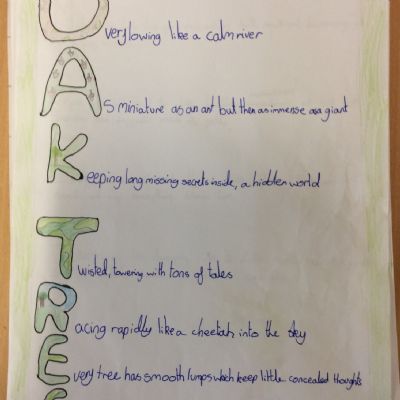 Overflowing like a calm river
As miniature as an ant but then as immense as a giant
Keeping long missing secrets inside, a hidden world
Twisted, towering with tons of tales
Racing rapidly like a cheetah into the sky
Every tree has smooth lumps which keep little concealed thoughts
S